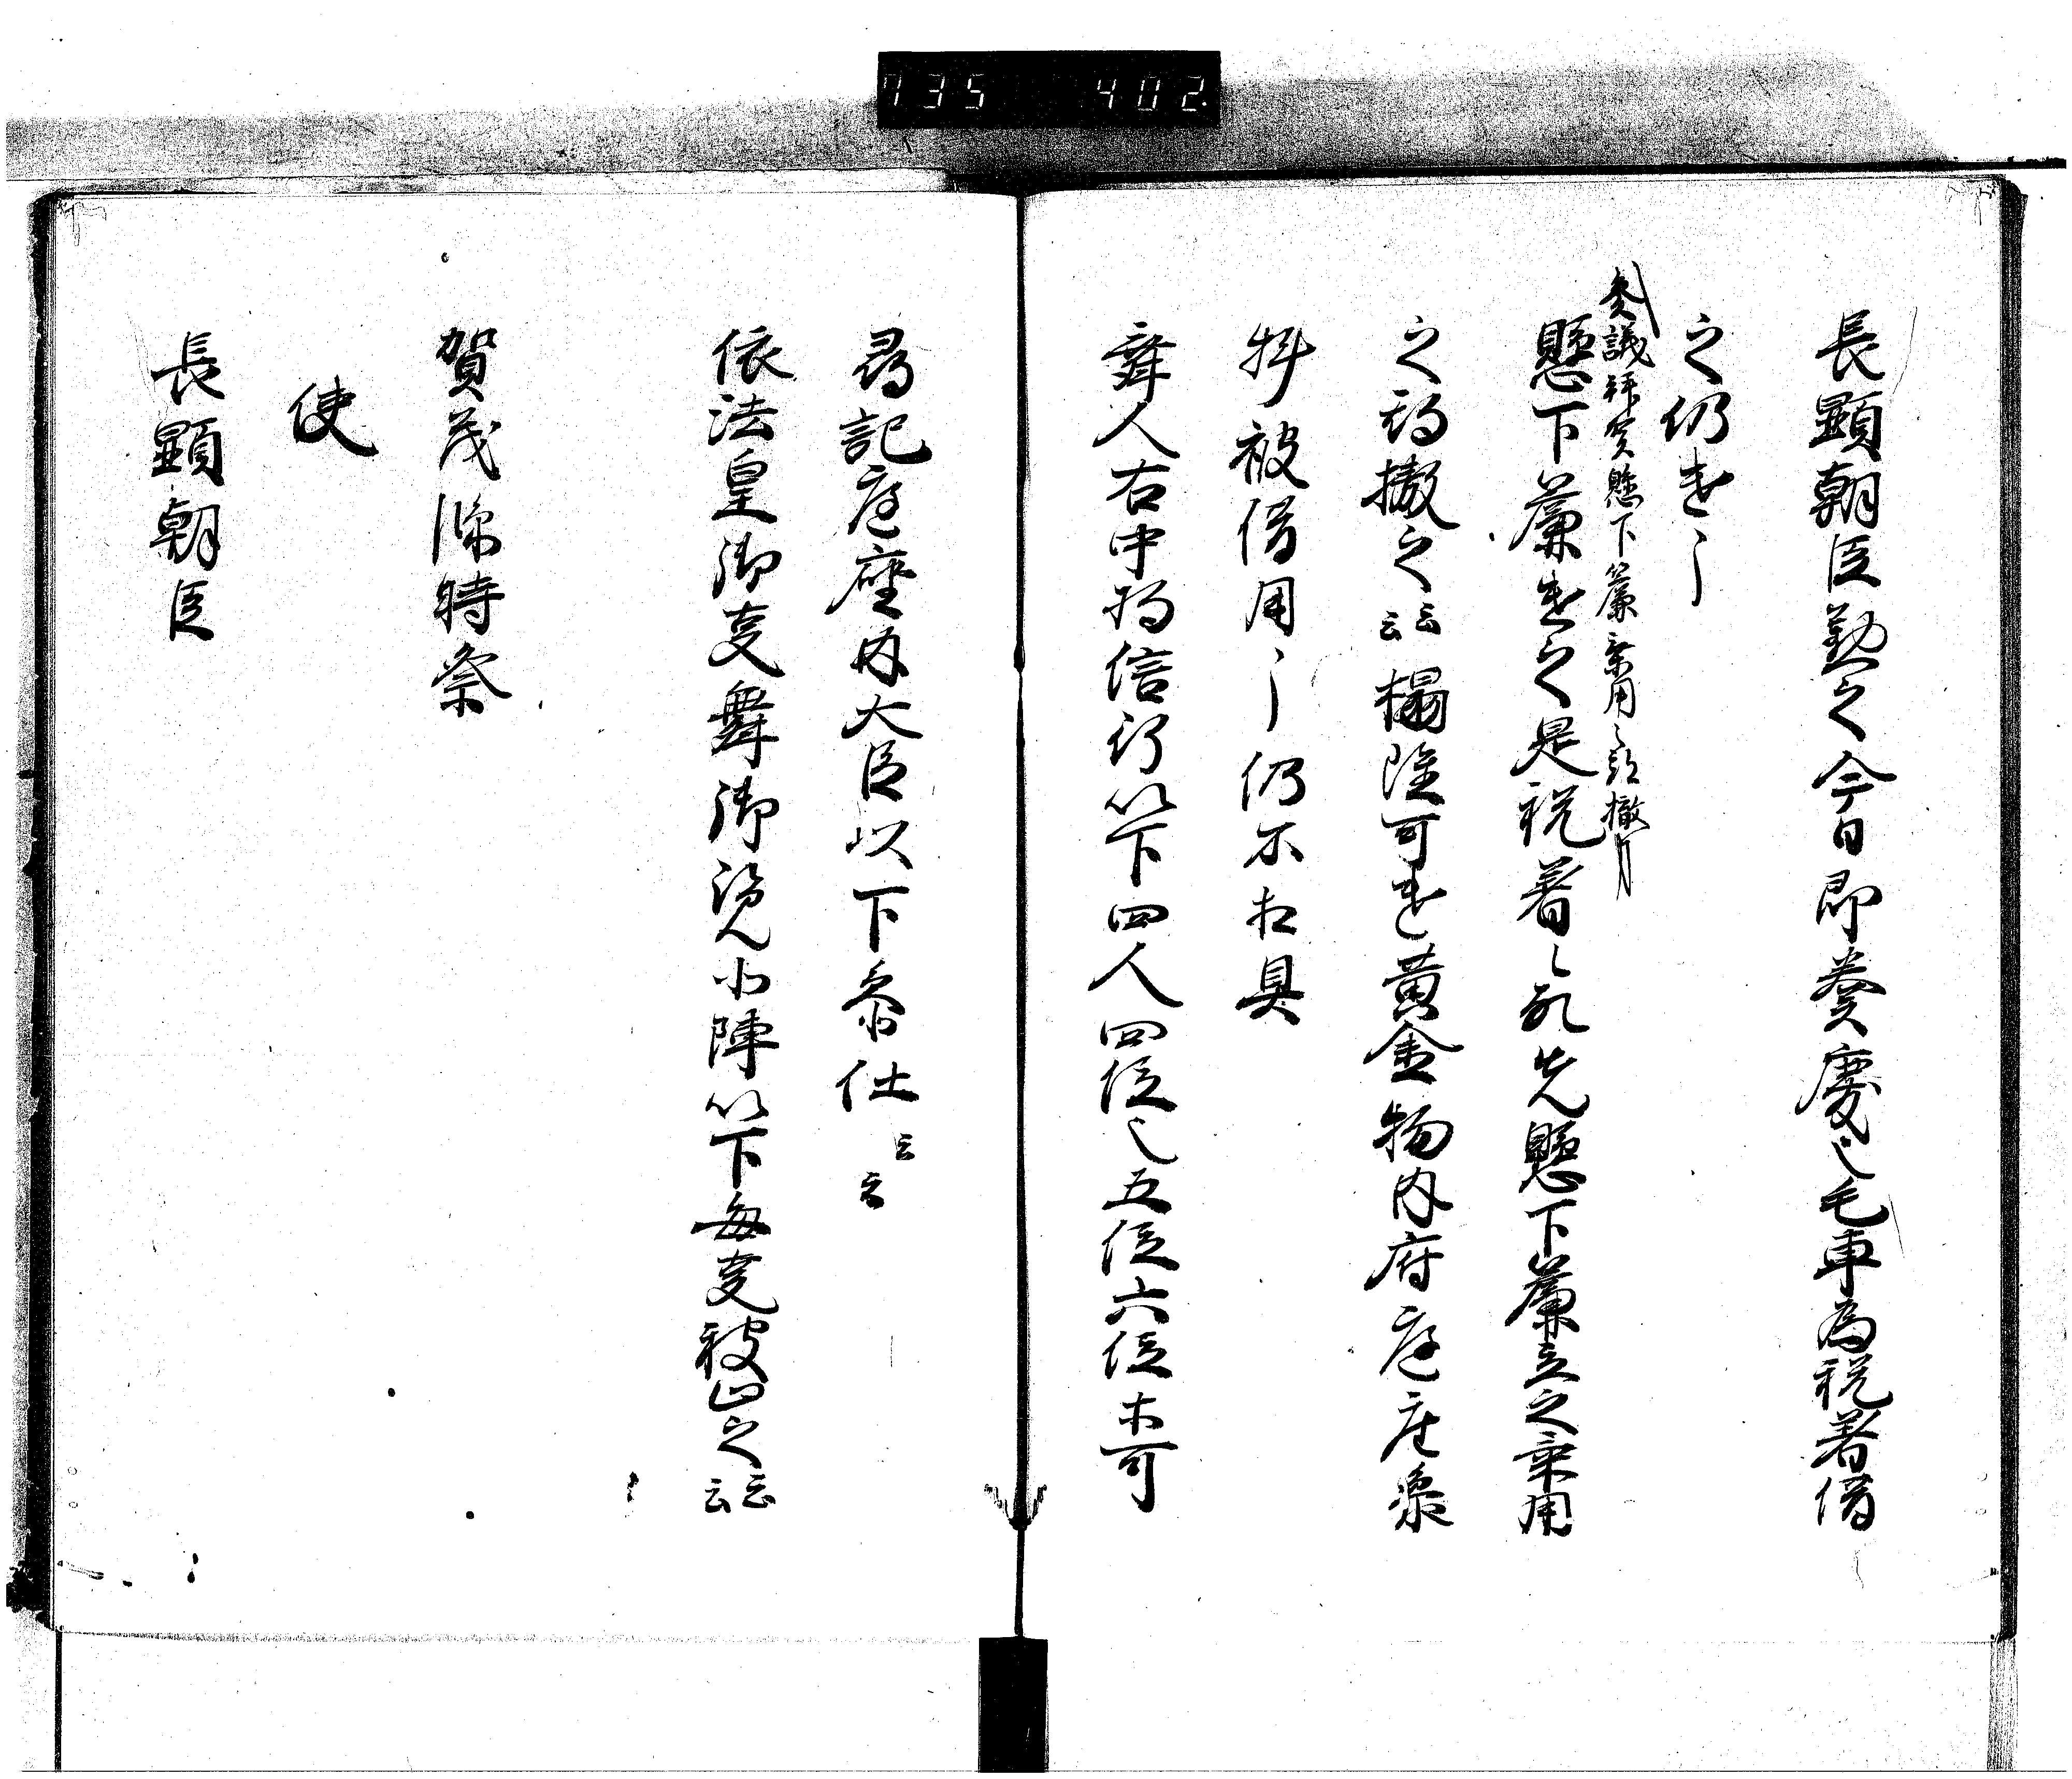 735 402
長顕朝臣勤之今日即奏慶之毛車為祝著借
之仍遣之
参議拝賀懸下簾乗用之説撤
懸下簾遣之是祝著之故先懸下簾立之乗用
之期撤之云云榻随可遣黄金物内府庭座
牛被借用之仍不相具
舞人右中将信行以下四人四位也五位六位未可
尋記庭座内大臣以下参仕云云
依法皇御事舞御覧北陣以下毎事被止之云云
賀茂臨時祭
使
長顕朝臣